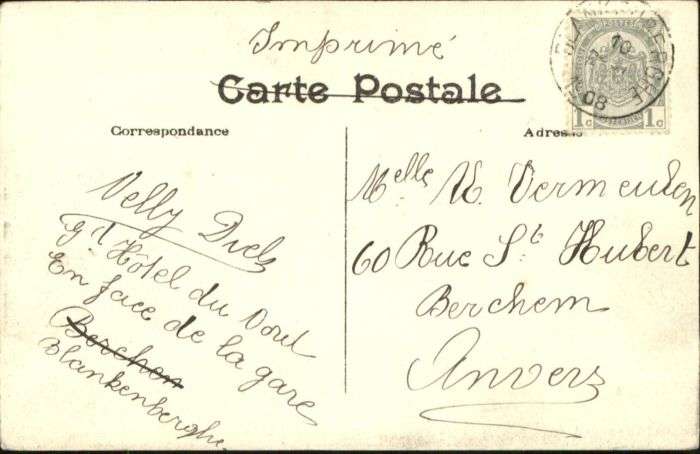 Imprimé
Carte Postale
Correspondance
Adresse
Nelly Diels
gd Hôtel du
En face de la gare
Berchem
Blankenberghe
Melle M. Vermeulen
60 Rue St Hubert
Berchem
Anvers
10
08
1c 1c